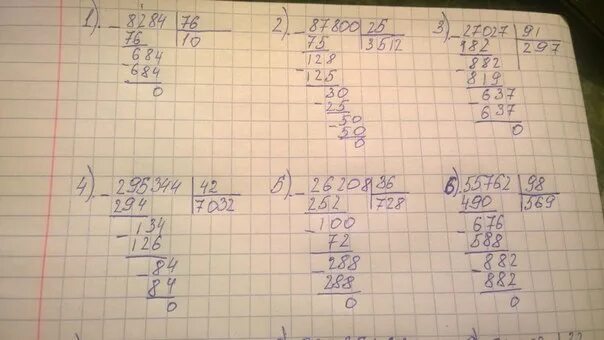 1). - 8284 | 76
76 | 10
684
- 684
0
2). - 87800 | 25
75 | 3512
128
- 125
30
- 25
50
- 50
0
3) - 27027 | 91
182 | 297
- 882
819
- 637
637
0
4). - 295344 | 42
294 | 7032
- 134
126
- 84
84
0
5). - 26208 | 36
252 | 728
- 100
72
- 288
288
0
6). 55762 | 98
490 | 569
- 676
588
- 882
882
0